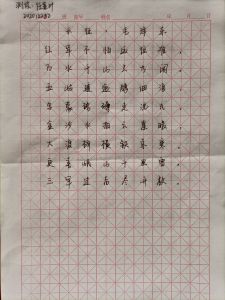 班 姓名 年 月 日
长征，毛泽东
红军不怕远征难，
万水千山只等闲。
五岭逶迤腾细浪，
乌蒙磅礴走泥丸。
金沙水拍云崖暖，
大渡桥横铁索寒。
更喜岷山千里雪，
三军过后尽开颜。